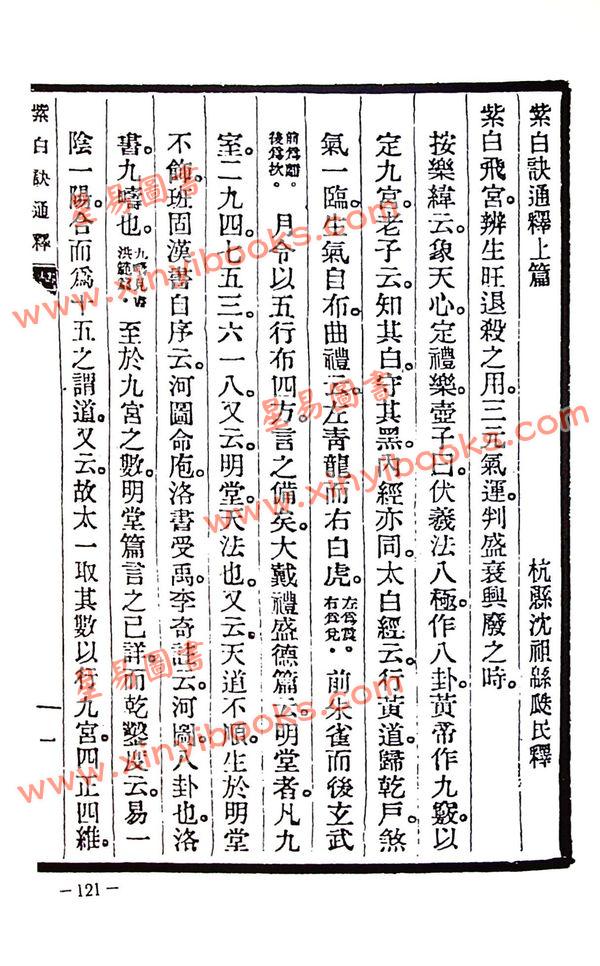 紫白訣通釋上篇
杭縣沈祖緜𬱖民釋
紫白飛宮。辨生旺退殺之用。三元氣運。判盛衰興廢之時。
按樂緯云。象天心。定禮樂。壺子曰。伏羲法八極。作八卦。黃帝作九竅。以
定九宮。老子云。知其白。守其黑。內經亦同。太白經云。行黃道。歸乾戶。煞
氣一臨。生氣自布。曲禮云。左青龍而右白虎。左為震。右為兌。前朱雀而後玄武
前為離。後為坎。月令以五行布四方。言之備矣。大戴禮盛德篇云。明堂者。凡九
室。二九四七五三六一八。又云。明堂天法也。又云。天道不順。生於明堂
不飾。班固漢書自序云。河圖命庖。洛書受禹。李奇註云。河圖八卦也。洛
書九疇也。至於九宮之數。明堂篇言之已詳。而乾鑿度云。易一
陰一陽。合而為十五之謂道。又云。故太一取其數。以行九宮。四正四維。
紫白訣通釋
一
星易圖書
www.xinyibooks.com
星易圖書
www.xinyibooks.com
星易圖書
www.xinyibooks.com
－121－